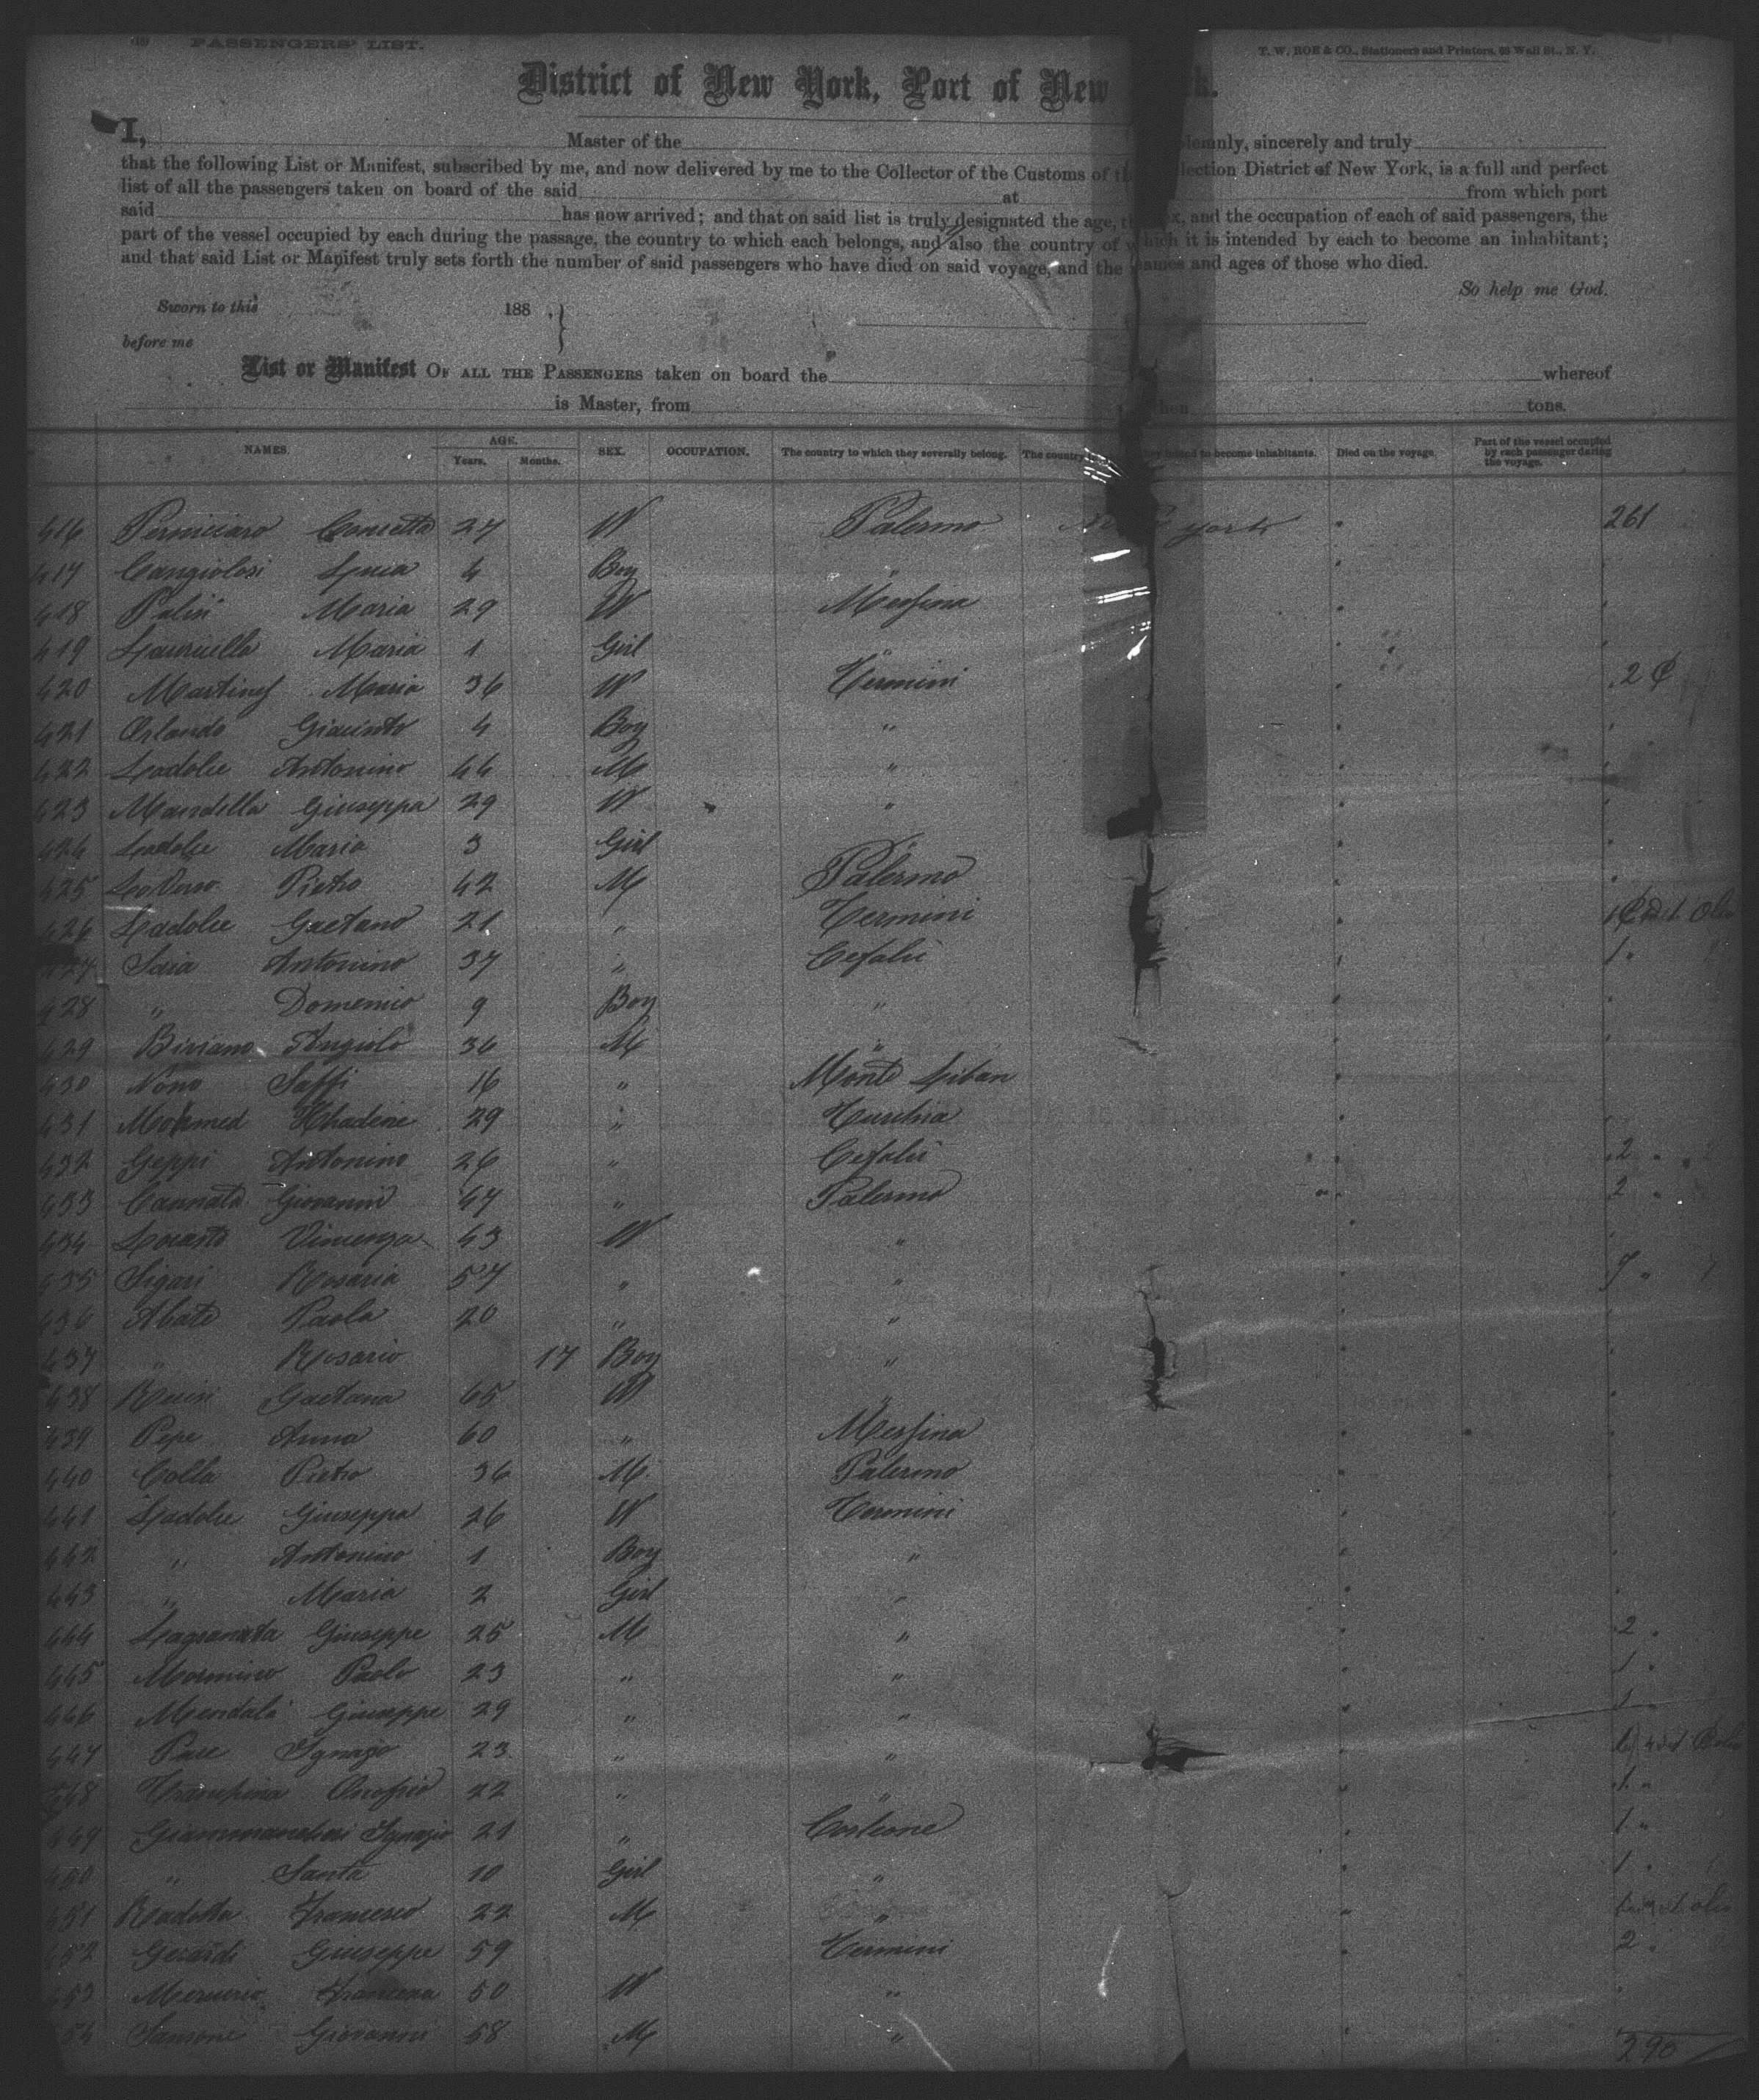 PASSENGERS' LIST.
T. W. ROE & CO., Stationers and Printers, 63 Wall St., N. Y.
District of New York, Port of New k.
I, Master of the lemnly, sincerely and truly
that the following List or Manifest, subscribed by me, and now delivered by me to the Collector of the Customs of lection District of New York, is a full and perfect
list of all the passengers taken on board of the said at from which port
said has now arrived; and that on said list is truly designated the age, and the occupation of each of said passengers, the
part of the vessel occupied by each during the passage, the country to which each belongs, and also the country of which it is intended by each to become an inhabitant;
and that said List or Manifest truly sets forth the number of said passengers who have died on said voyage, and the names and ages of those who died.
So help me God.
Sworn to this 188 .}
before me
List or Manifest OF ALL THE PASSENGERS taken on board the whereof
is Master, from then tons.
NAMES. AGE. Years. Months. SEX. OCCUPATION. The country to which they severally belong. The country to become inhabitants. Died on the voyage. Part of the vessel occupied by each passenger during the voyage.
416 Perniciaro Concetta 27 W Palermo New york 261
417 Cangiolosi 4 Boy "
418 Maria 29 W Messina
419 Lauricella Maria 1 Girl "
420 Martinez Maria 36 W Termini 2
421 Orlando Giacinto 4 Boy "
422 Ladolce Antonino 44 M "
423 Mandella Giuseppa 29 W "
424 Ladolce Maria 3 Girl "
425 Pietro 42 M Palermo
426 Ladolce Gaetano 21 " Termini
427 Saia Antonino 37 " Cefalù 1 "
428 " Domenico 9 Boy "
429 Angiolo 36 M "
430 Nono Saffi 16 " Monte Liban
431 Mohmed 29 " Turchia
432 Geppi Antonino 26 " Cefalù 2 "
433 Cannata Giovanni 47 " Palermo 2 "
434 Locasto Vincenza 43 W "
435 Sigari Rosaria 57 " " 7 "
436 Abate Paola 20 " "
437 " Rosario 17 Boy "
438 Gaetana 65 W "
439 Pepe Anna 60 " Messina
440 Colla Pietro 36 M Palermo
441 Ladolce Giuseppa 26 W Termini
442 " Antonino 1 Boy "
443 " Maria 2 Girl "
444 Lagranata Giuseppe 25 M " 2 "
445 Mormino Paolo 23 " " 1 "
446 Mendala Giuseppe 29 " " 1 "
447 Pace Ignazio 23 " "
448 Onofrio 22 " " 1 "
449 Ignazio 21 " Corleone 1 "
450 " Santa 10 Girl " 1 "
451 Radotta Francesco 22 M "
452 Gerardi Giuseppe 59 Termini 2 "
453 Mercurio Francesca 50 W "
454 Sansone Giovanni 58 M "
290